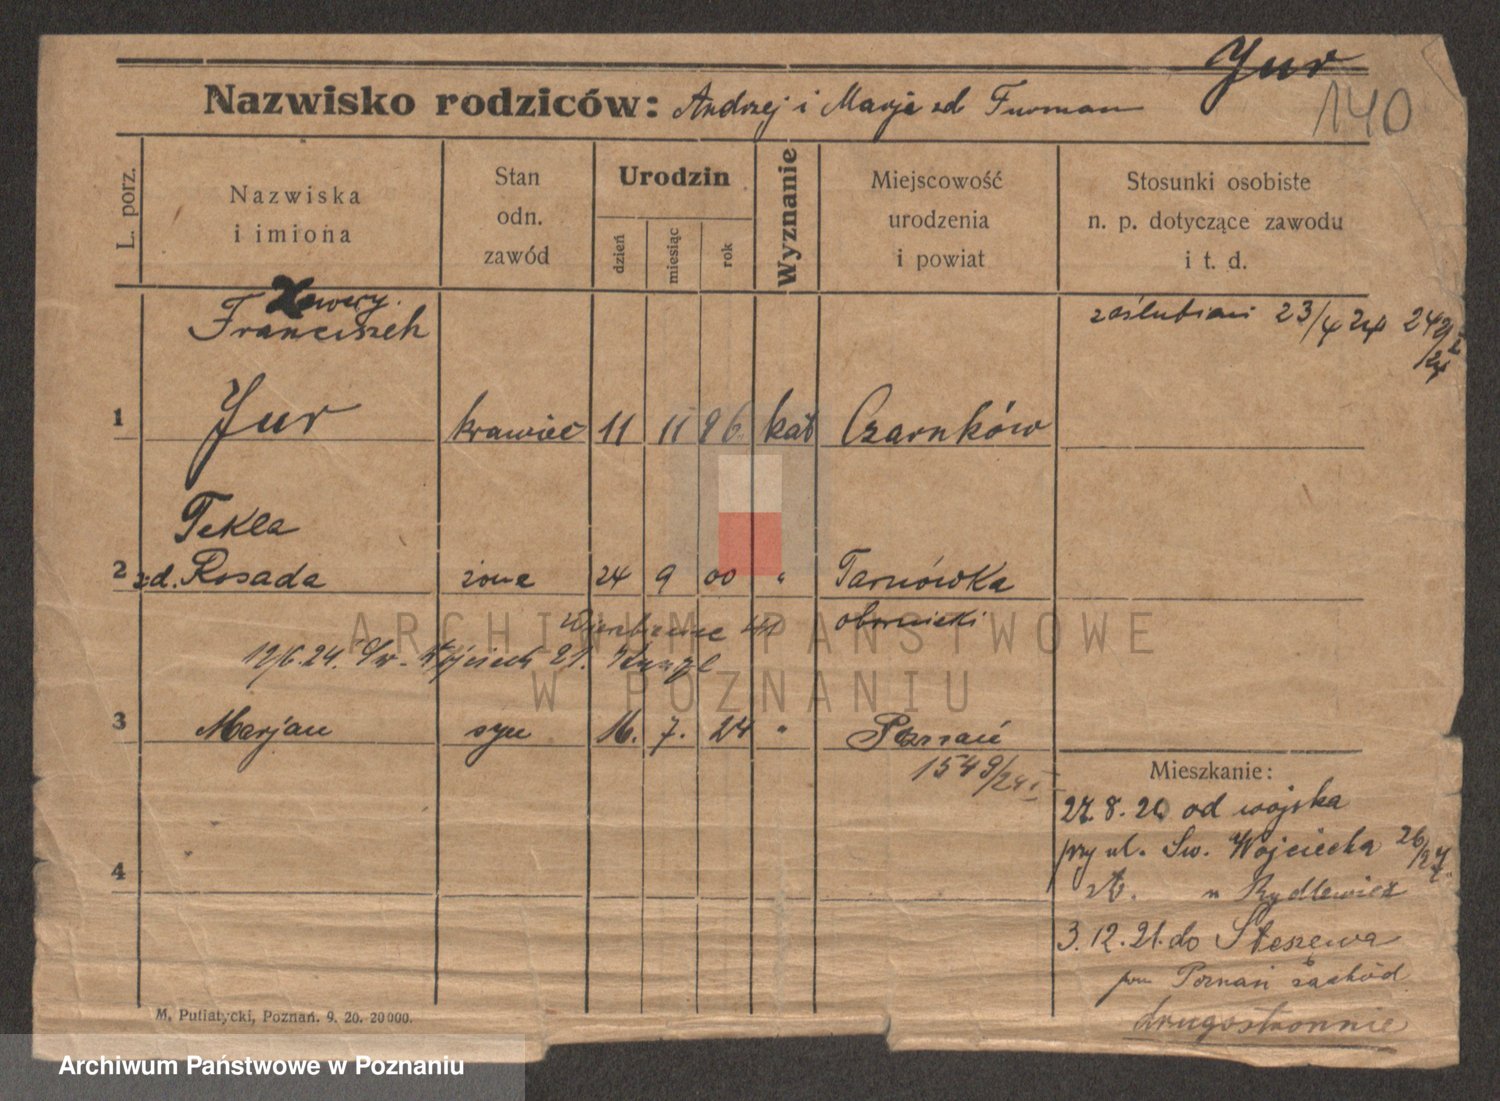 Jur
140
Nazwisko rodziców: Andrzej i Marja zd Furman
L. porz.
Nazwiska i imiona
Stan odn. zawód
Urodzin
dzień
miesiąc
rok
Wyznanie
Miejscowość urodzenia i powiat
Stosunki osobiste n. p. dotyczące zawodu i t. d.
Xawery
Franciszek
zaślubieni 23/4 24
1 Jur krawiec 11 11 96 kat Czarnków
Tekla
2 zd. Rosada żona 24 9 00 " Tarnówka
obornicki
12/6.24. Św. Wojciech 21.
3 Marjan syn 16. 7. 24 " Poznań
1549/24
Mieszkanie:
27.8.20 od wojska
przy ul. Św. Wojciecha 26/27
u Rydlewicz
4
3.12.21. do Stęszewa
pow Poznań zachód
drugostronnie
M. Putiatycki, Poznań. 9. 20. 20000.
ARCHIWUM PAŃSTWOWE
W POZNANIU
Archiwum Państwowe w Poznaniu